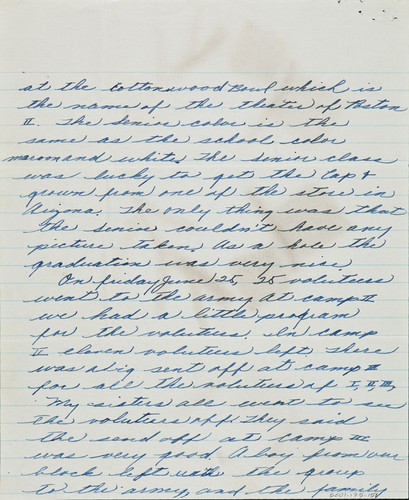 at the Cottonwood Bowl which is
the name of the theatre of Poston
II. The senior color is the
same as the school color
maroon and white. The senior class
was lucky to get the Cap &
gown from one of the store in
Arizona. The only thing was that
the senior couldn't have any
picture taken. As a hole the
graduation was very nice.
On friday June 25, 25 voluteers
went to the army. At camp II
we had a little program
for the voluteers. In camp
II eleven voluteers left. There
was a big sent off at camp III
for all the voluteers of I, II, III,
My sisters all went to see
the voluteers off. They said
the send off at camp III
was very good. A boy from our
block left with the group
to the army, and the family